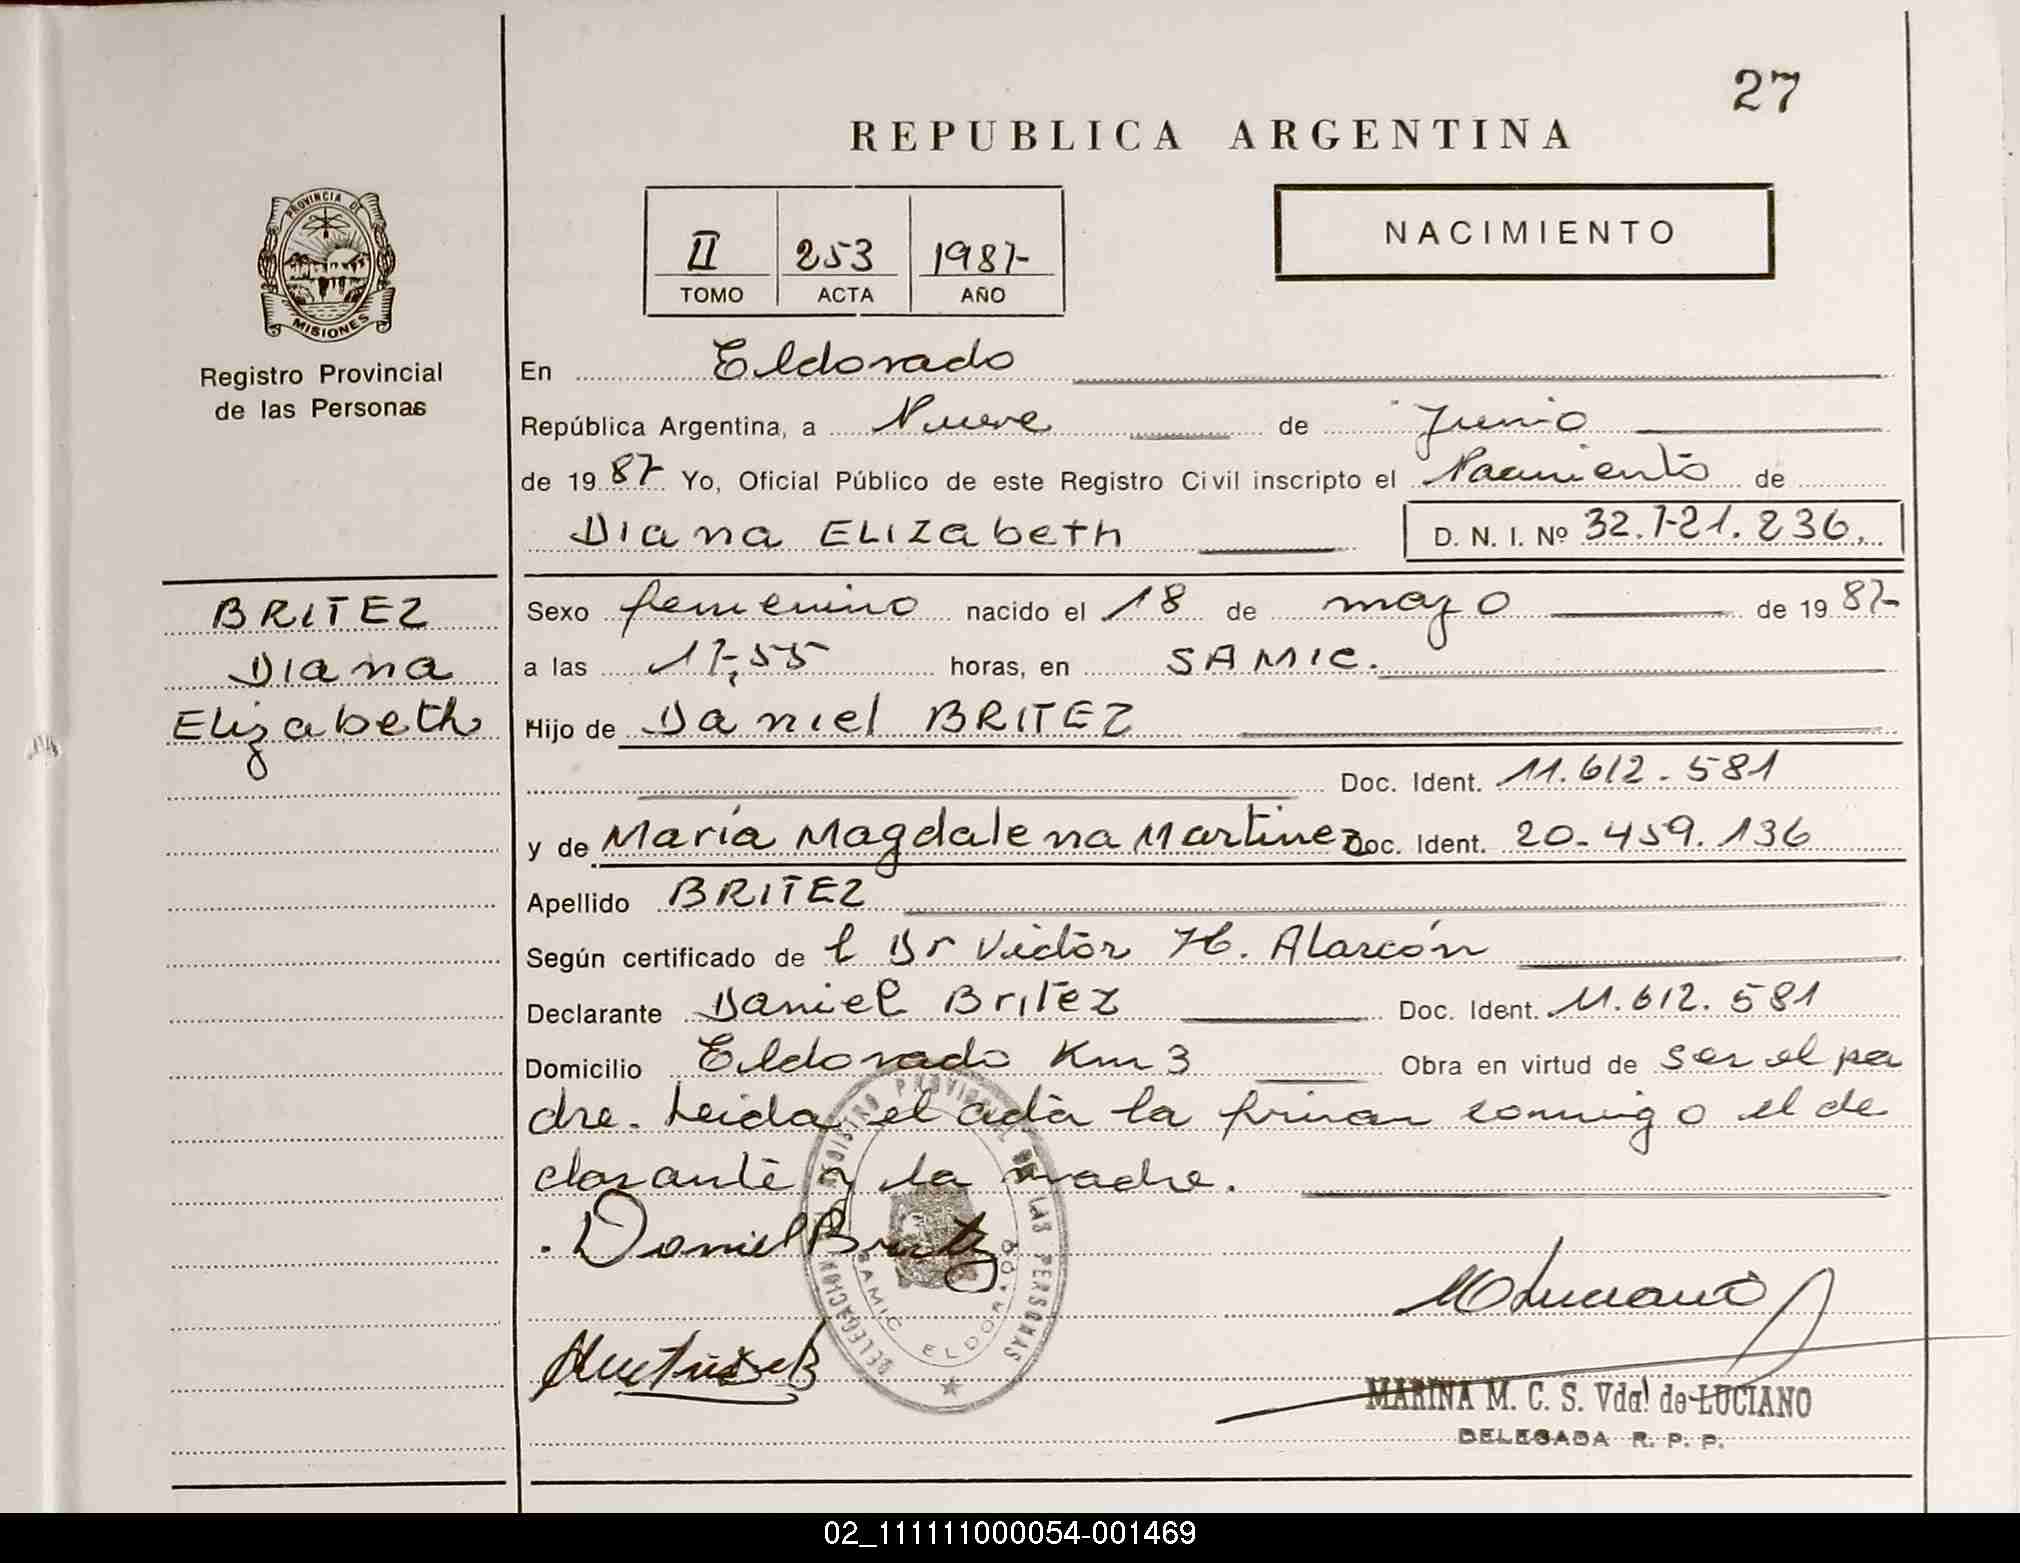 27
REPUBLICA ARGENTINA
PROVINCIA DE
MISIONES
Registro Provincial
de las Personas
II 253 1987
TOMO ACTA AÑO
NACIMIENTO
En Eldorado
República Argentina, a Nueve de Junio
de 1987 Yo, Oficial Público de este Registro Civil inscripto el Nacimiento de
Diana ELIZabeth D. N. I. Nº 32.721.236.
BRITEZ
Diana
Elizabeth
Sexo femenino nacido el 18 de mayo de 1987
a las 17,55 horas, en SAMIC.
Hijo de Daniel BRITEZ
Doc. Ident. 11.612.581
y de María Magdalena Martinez Doc. Ident. 20.459.136
Apellido BRITEZ
Según certificado de l Dr Victor H. Alarcón
Declarante Daniel Britez Doc. Ident. 11.612.581
Domicilio Eldorado Km 3 Obra en virtud de ser el pa
dre. Leida el acta la firman conmigo el de
clarante y la madre.
Daniel Britez
REGISTRO PROVINCIAL DE LAS PERSONAS
DELEGACION
SAMIC ELDORADO
M Luciano
MARINA M. C. S. Vda. de LUCIANO
DELEGADA R. P. P.
02_111111000054-001469